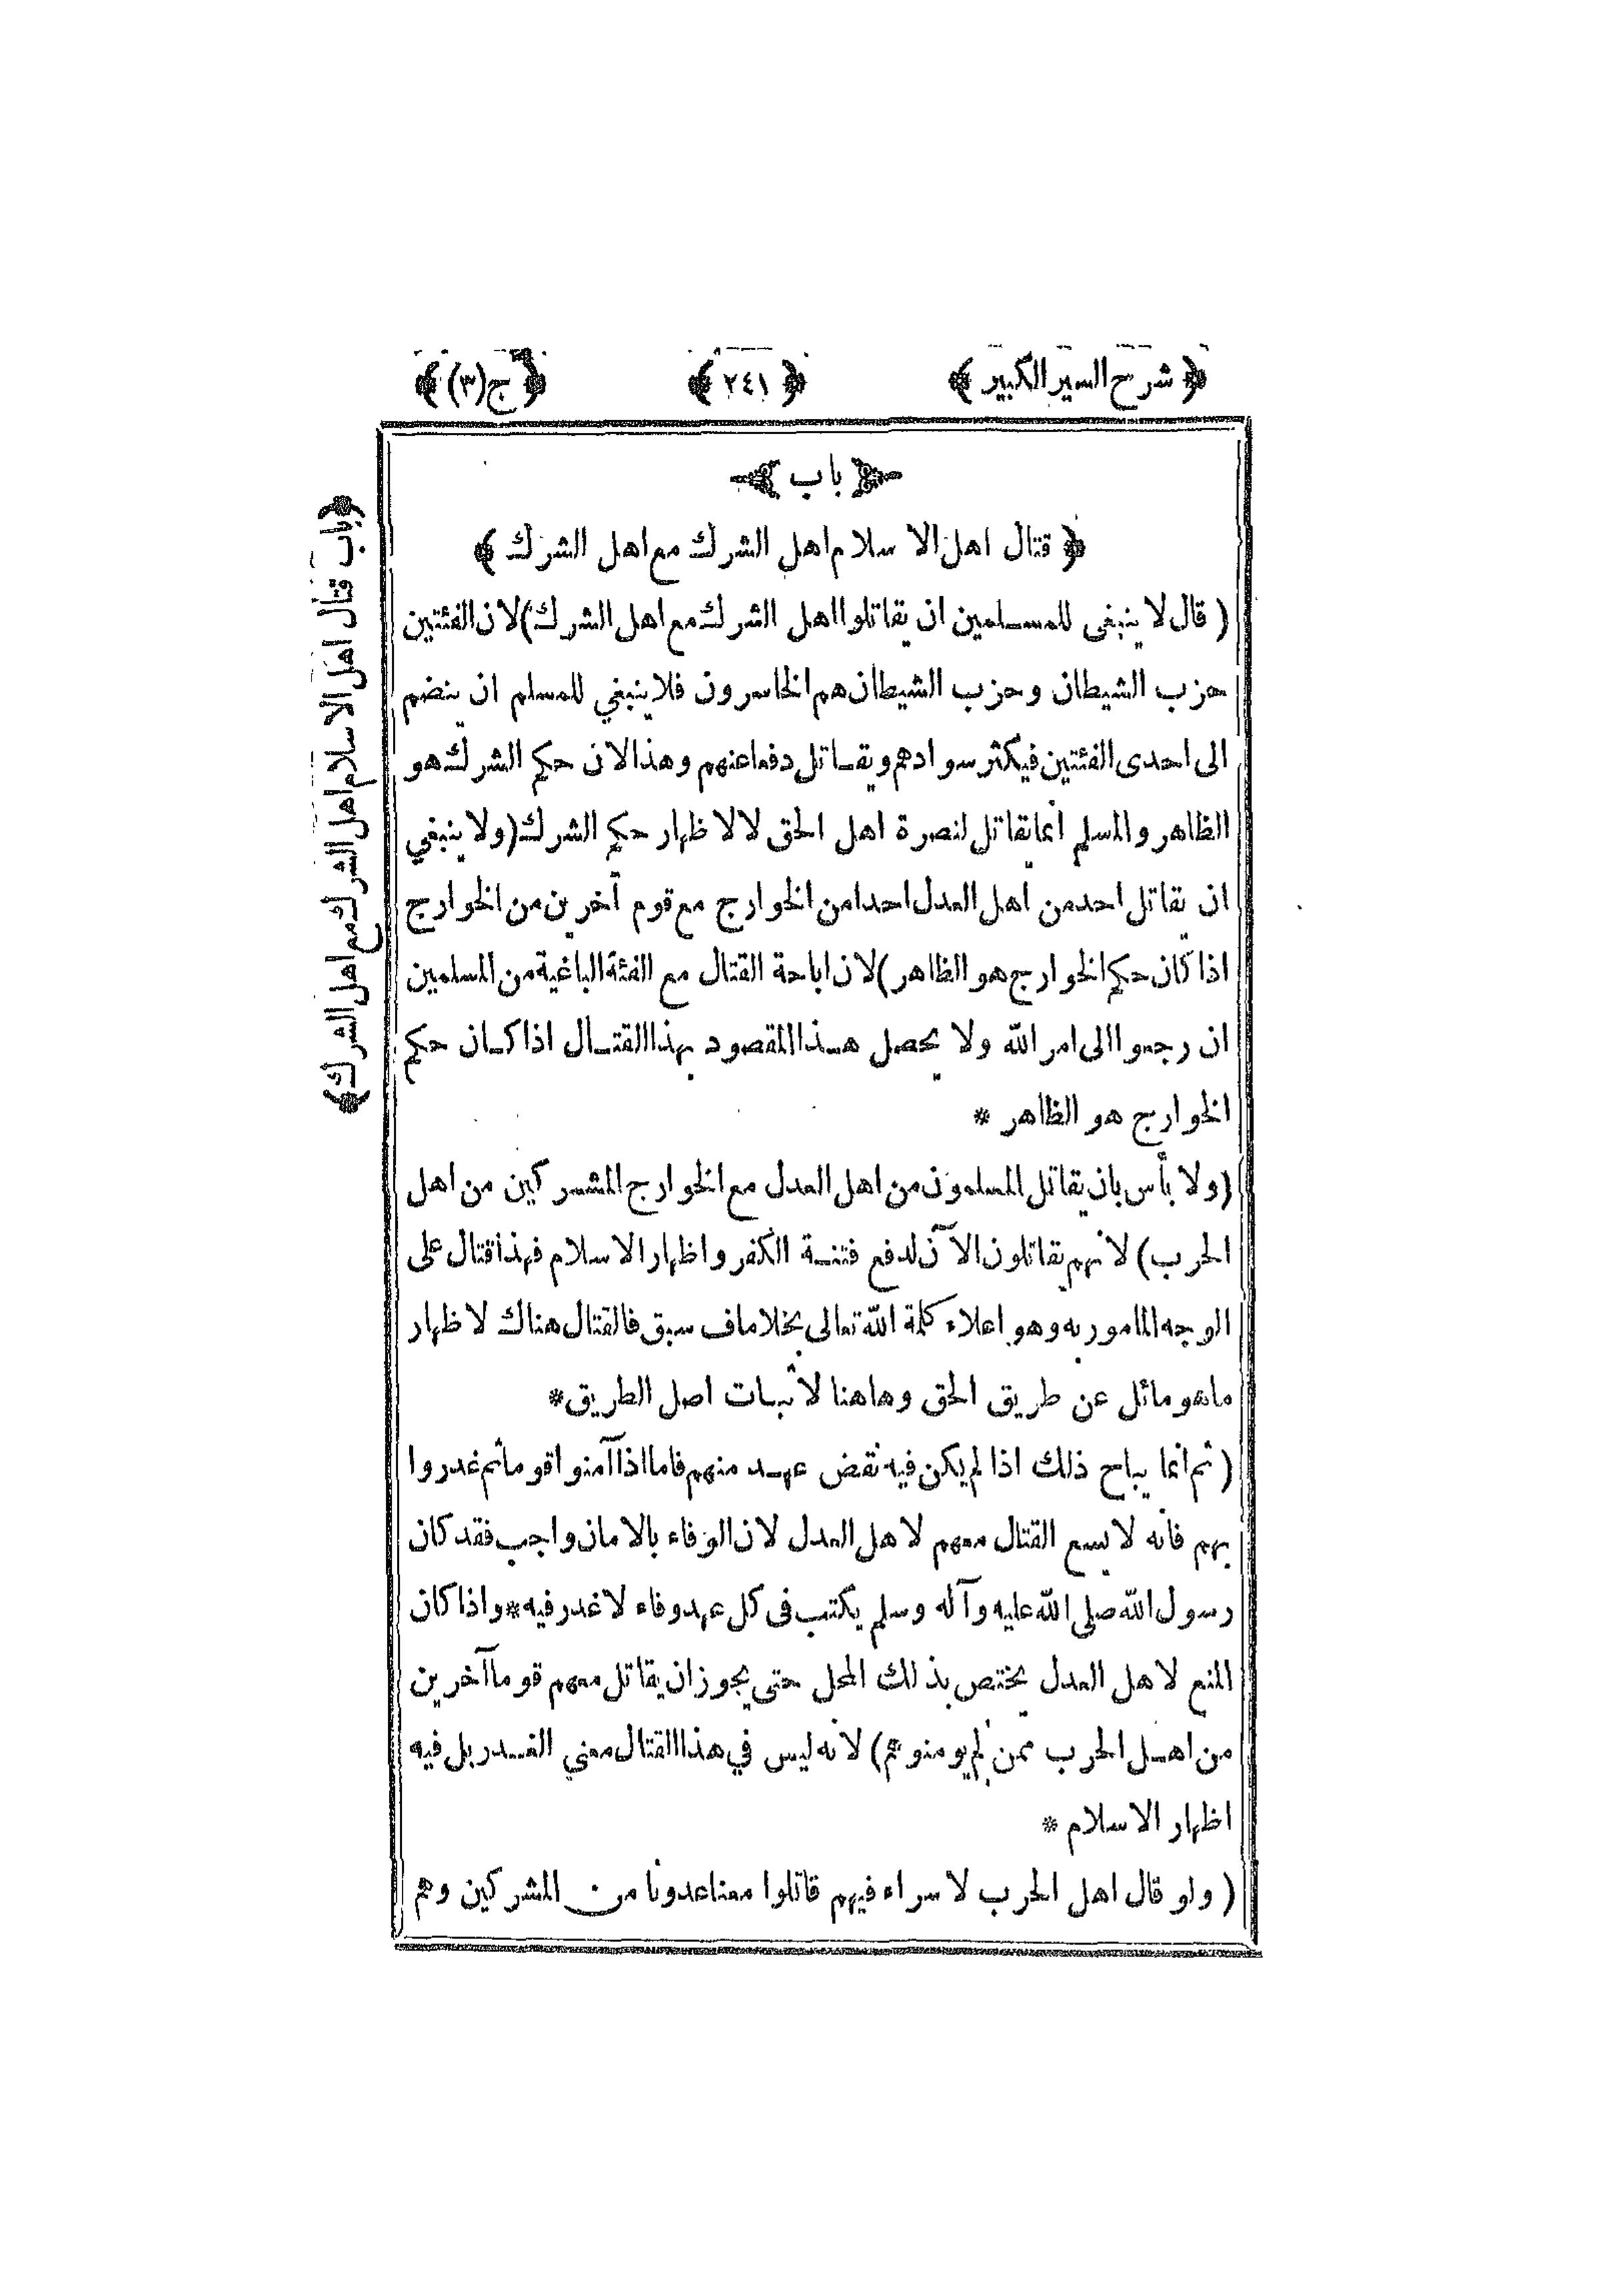 ﴿ شرح السير الكبير ﴾ ﴿ ٢٤١ ﴾ ﴿ ج(٣) ﴾
﴿ باب ﴾
﴿ قتال اهل الاسلام اهل الشرك مع اهل الشرك ﴾
( قال لا ينبغي للمسلمين ان يقاتلوا اهل الشرك مع اهل الشرك) لان الفئتين
حزب الشيطان وحزب الشيطان هم الخاسرون فلا ينبغي للمسلم ان ينضم
الى احدى الفئتين فيكثر سوادهم ويقاتل دفعا عنهم وهذا لان حكم الشرك هو
الظاهر والمسلم انما يقاتل لنصرة اهل الحق لا لاظهار حكم الشرك (ولا ينبغي
ان يقاتل احد من اهل العدل احدا من الخوارج مع قوم آخرين من الخوارج
اذا كان حكم الخوارج هو الظاهر) لان اباحة القتال مع الفئة الباغية من المسلمين
ان رجعوا الى امر الله ولا يحصل هذا المقصود بهذا القتال اذا كان حكم
الخوارج هو الظاهر *
(ولا بأس بان يقاتل المسلمون من اهل العدل مع الخوارج المشركين من اهل
الحرب) لانهم يقاتلون الآن لدفع فتنة الكفر واظهار الاسلام فهذا قتال على
الوجه المامور به وهو اعلاء كلمة الله تعالى بخلاماف سبق فالقتال هناك لاظهار
ماهو مائل عن طريق الحق وهاهنا لاثبات اصل الطريق *
( ثم انما يباح ذلك اذا لم يكن فيه نقض عهد منهم فاما اذا آمنوا قوما ثم غدروا
بهم فانه لا يسع القتال معهم لاهل العدل لان الوفاء بالامان واجب فقد كان
رسول الله صلى الله عليه وآله وسلم يكتب فى كل عهد وفاء لا غدر فيه * واذا كان
المنع لاهل العدل يختص بذلك المحل حتى يجوز ان يقاتل معهم قوما آخرين
من اهل الحرب ممن لم يومنوهم) لانه ليس في هذا القتال معني الغدر بل فيه
اظهار الاسلام *
( ولو قال اهل الحرب لاسراء فيهم قاتلوا معنا عدونا من المشركين وهم
﴿ باب قتال اهل الاسلام اهل الشرك مع اهل الشرك ﴾